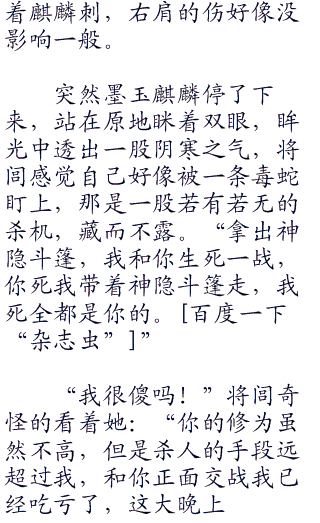 着麒麟刺，右肩的伤好像没
影响一般。
突然墨玉麒麟停了下
来，站在原地眯着双眼，眸
光中透出一股阴寒之气，将
闾感觉自己好像被一条毒蛇
盯上，那是一股若有若无的
杀机，藏而不露。“拿出神
隐斗篷，我和你生死一战，
你死我带着神隐斗篷走，我
死全都是你的。[百度一下
“杂志虫”]”
“我很傻吗！”将闾奇
怪的看着她：“你的修为虽
然不高，但是杀人的手段远
超过我，和你正面交战我已
经吃亏了，这大晚上